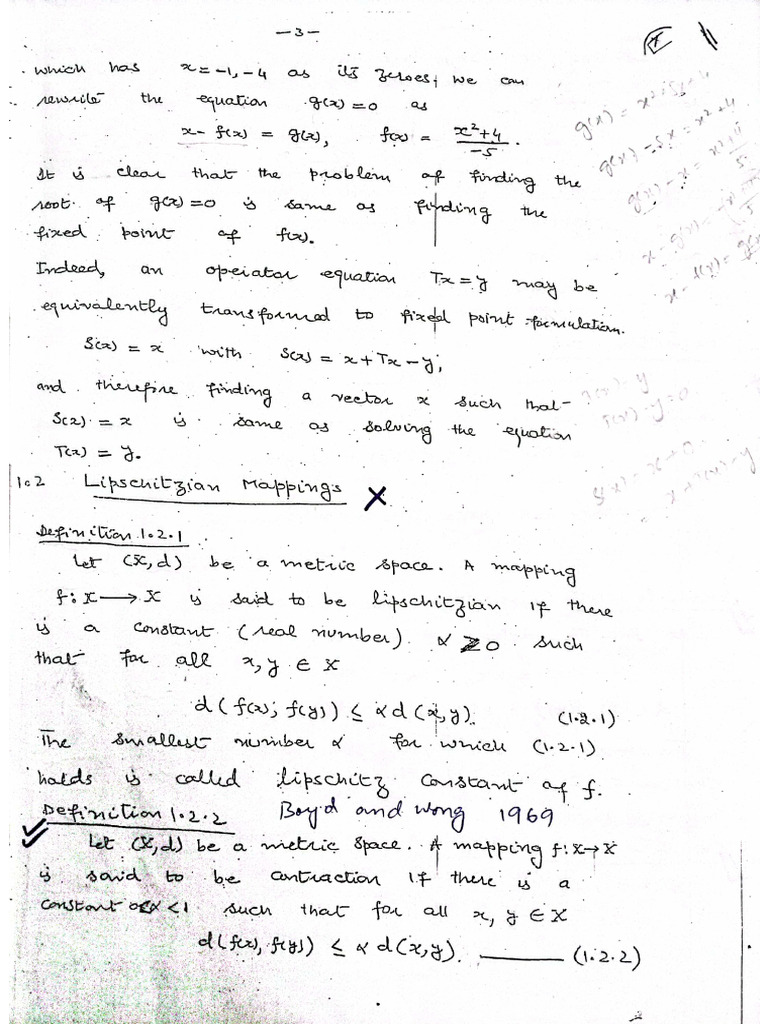 -3-
which has x = -1, -4 as its zeroes, we can
rewrite the equation g(x) = 0 as
x - f(x) = g(x), f(x) = x²+4 / -5 .
It is clear that the problem of finding the
root of g(x) = 0 is same as finding the
fixed point of f(x).
Indeed, an operator equation Tx = y may be
equivalently transformed to fixed point formulation.
S(x) = x with S(x) = x + Tx - y,
and therefire finding a vector x such that
S(x) = x is same as solving the equation
T(x) = y.
1.2 Lipschitzian Mappings X
Definition 1.2.1
Let (X, d) be a metric space. A mapping
f: X → X is said to be lipschitzian if there
is a constant (real number) α ≥ 0 such
that for all x, y ∈ X
d(f(x), f(y)) ≤ α d(x, y). (1.2.1)
The smallest number α for which (1.2.1)
holds is called lipschitz constant of f.
Definition 1.2.2 Boyd and Wong 1969
Let (X, d) be a metric space. A mapping f: X → X
is said to be contraction if there is a
constant 0≤α<1 such that for all x, y ∈ X
d(f(x), f(y)) ≤ α d(x, y). (1.2.2)
g(x) - 5x = x²+4